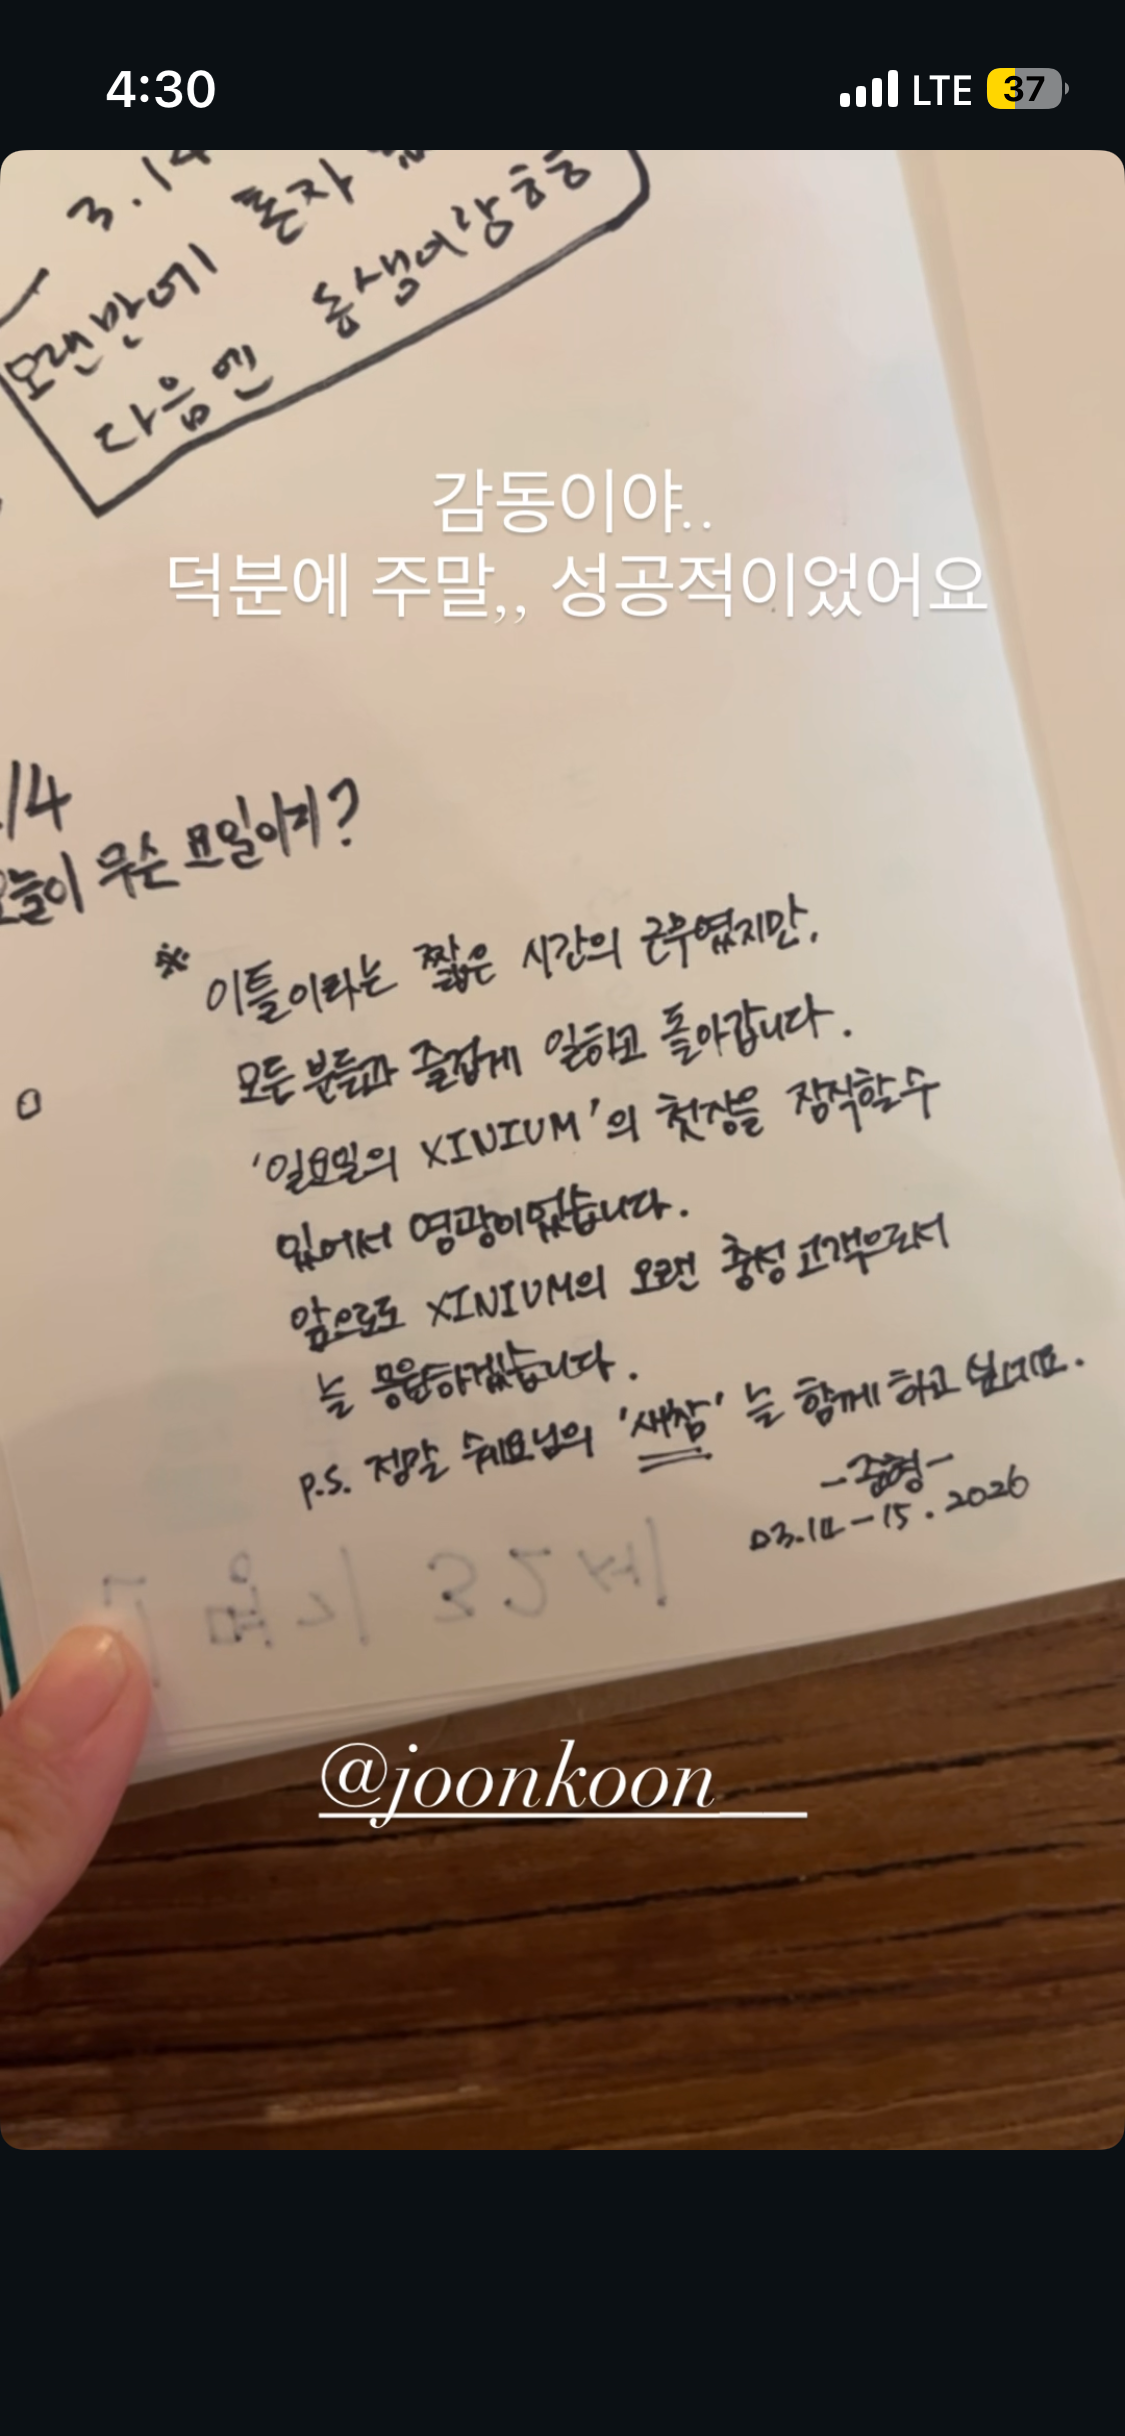 4:30
LTE 37
3.14
오랜만에 혼자
다음엔 동생이랑 ㅎㅎ
감동이야..
덕분에 주말,, 성공적이었어요
/4
오늘이 무슨 요일이지?
※ 이틀이라는 짧은 시간의 근무였지만,
모든 분들과 즐겁게 일하고 돌아갑니다.
'일요일의 XINIUM'의 첫장을 장식할 수
있어서 영광이었습니다.
앞으로도 XINIUM의 오랜 충성고객으로서
늘 응원하겠습니다.
p.s. 정말 쉐요님의 '새참'는 함께 하고 싶네요.
-준형-
03.14-15.2026
@joonkoon__